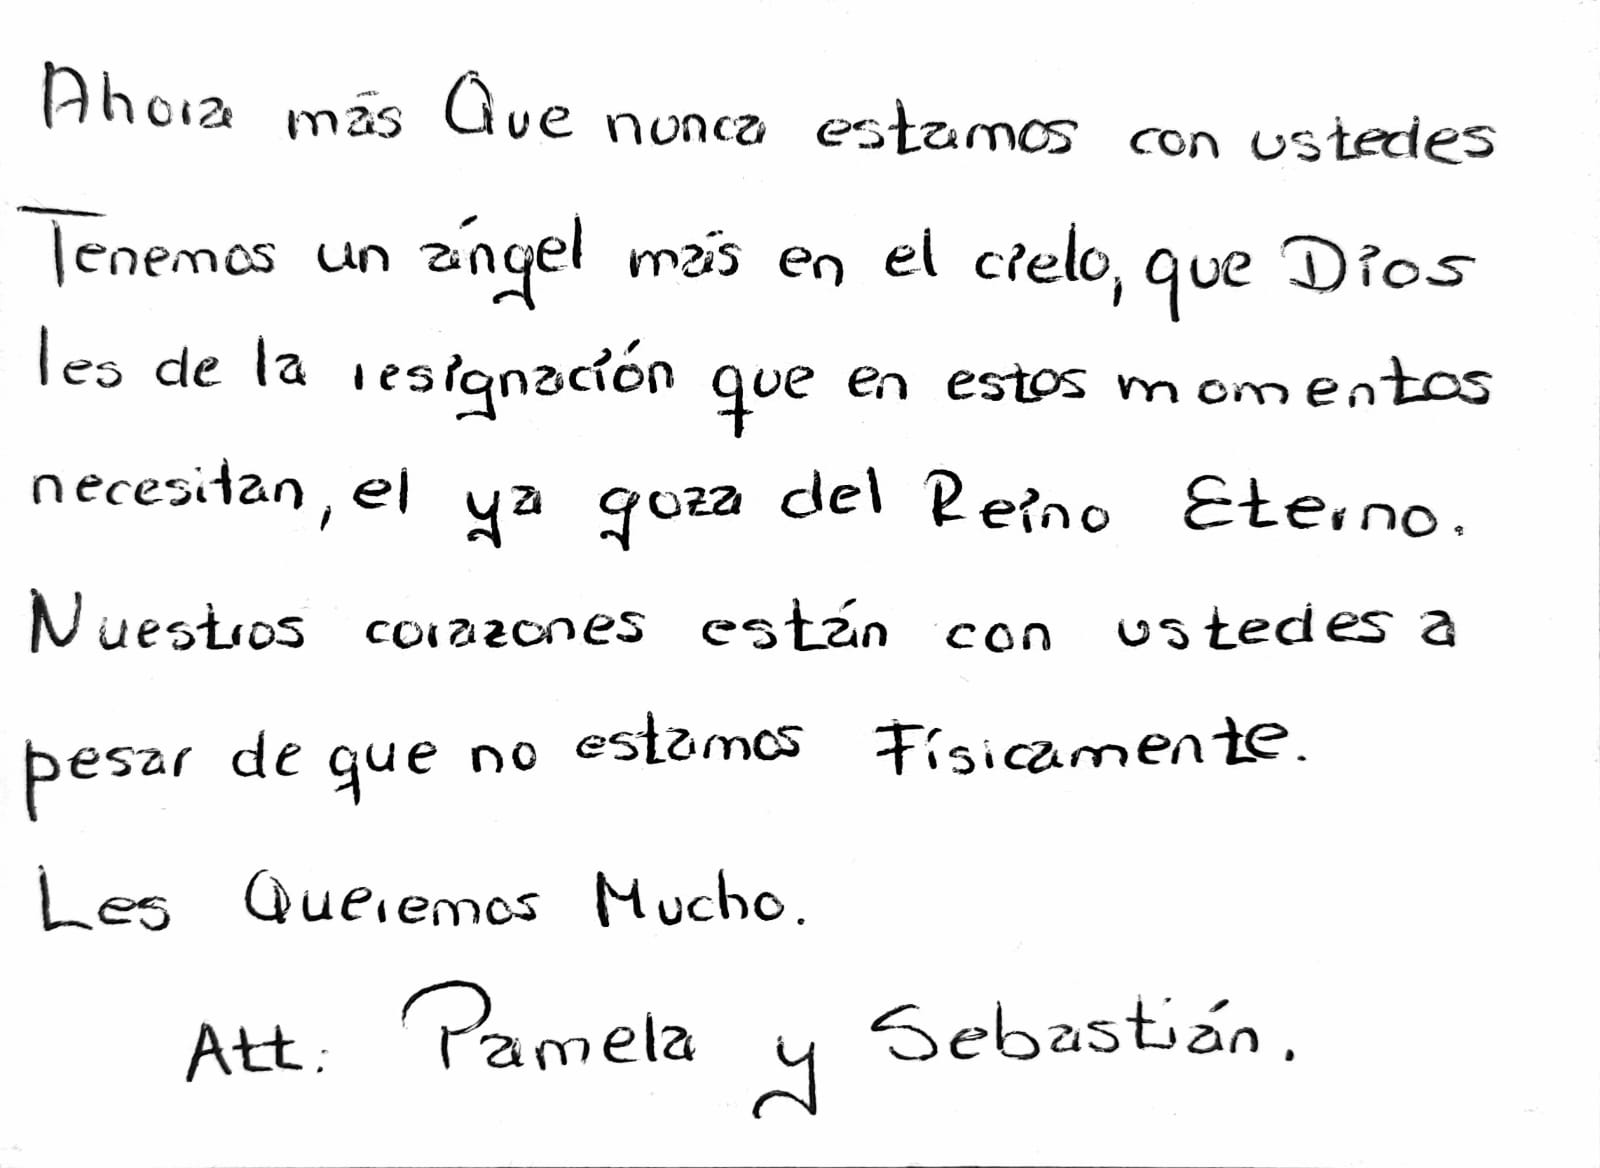 Ahora más Que nunca estamos con ustedes
Tenemos un ángel más en el cielo, que Dios
les de la resignación que en estos momentos
necesitan, el ya goza del Reino Eterno.
Nuestros corazones están con ustedes a
pesar de que no estamos Físicamente.
Les Queremos Mucho.
Att: Pamela y Sebastián.